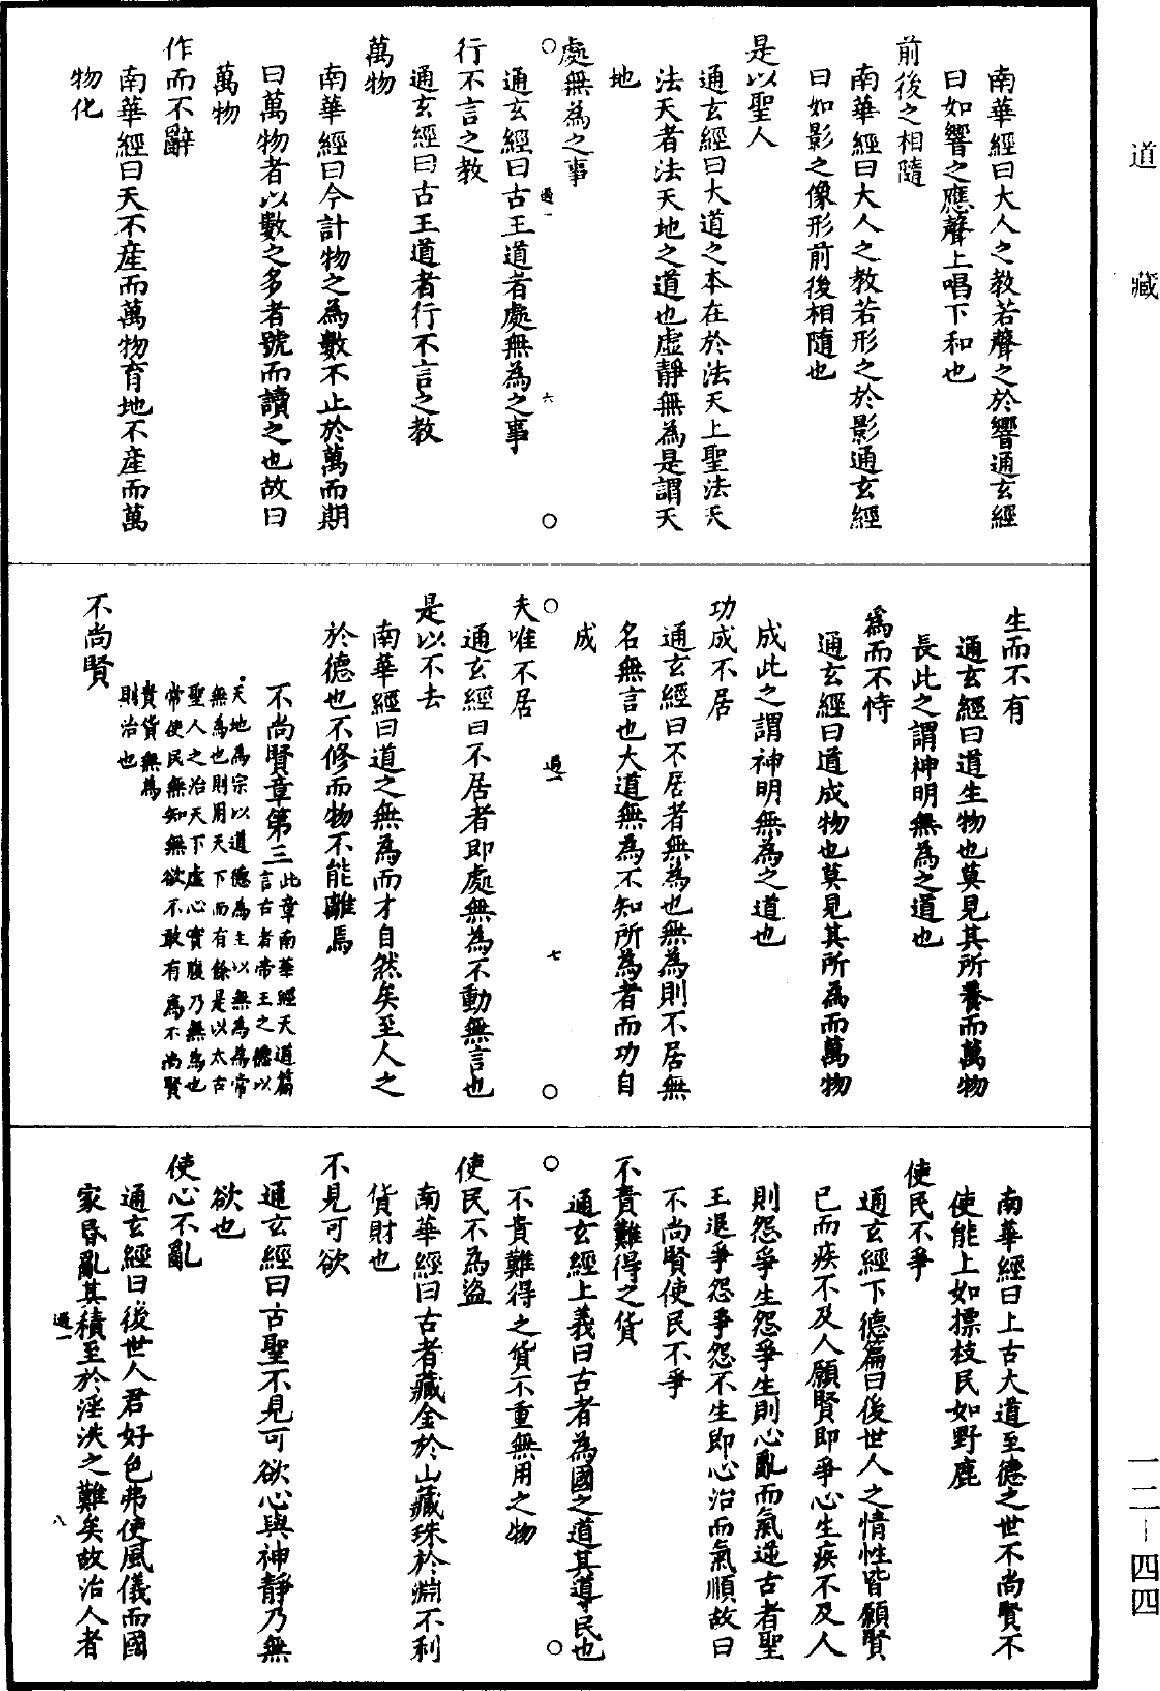 道藏
南華經曰大人之教若聲之於響通玄經
曰如響之應聲上唱下和也
前後之相隨
南華經曰大人之教若形之於影通玄經
曰如影之像形前後相隨也
是以聖人
通玄經曰大道之本在於法天上聖法天
法天者法天地之道也虛靜無為是謂天
地
處無為之事
過一
六
通玄經曰古王道者處無為之事
行不言之教
通玄經曰古王道者行不言之教
萬物
南華經曰今計物之為數不止於萬而期
曰萬物者以數之多者號而讀之也故曰
萬物
作而不辭
南華經曰天不産而萬物育地不産而萬
物化
生而不有
通玄經曰道生物也莫見其所養而萬物
長此之謂神明無為之道也
爲而不恃
通玄經曰道成物也莫見其所為而萬物
成此之謂神明無為之道也
功成不居
通玄經曰不居者無為也無為則不居無
名無言也大道無為不知所為者而功自
成
過一
七
夫唯不居
通玄經曰不居者即處無為不動無言也
是以不去
南華經曰道之無為而才自然矣至人之
於德也不修而物不能離焉
不尚賢章第三
此章南華經天道篇
言古者帝王之德以
天地為宗以道德為主以無為為常
無為也則用天下而有餘是以太古
聖人之治天下虛心實腹乃無為也
常使民無知無欲不敢有為不尚賢
貴貨無為
則治也
不尚賢
南華經曰上古大道至德之世不尚賢不
使能上如摽枝民如野鹿
使民不爭
通玄經下德篇曰後世人之情性皆願賢
已而疾不及人願賢即爭心生疾不及人
則怨爭生怨爭生則心亂而氣逆古者聖
王退爭怨爭怨不生即心治而氣順故曰
不尚賢使民不爭
不貴難得之貨
通玄經上義曰古者為國之道其導民也
不貴難得之貨不重無用之物
使民不為盜
南華經曰古者藏金於山藏珠於淵不利
貨財也
不見可欲
通玄經曰古聖不見可欲心與神靜乃無
欲也
使心不亂
通玄經曰後世人君好色弗使風儀而國
家昬亂其積至於淫泆之難矣故治人者
過一
八
一二—四四